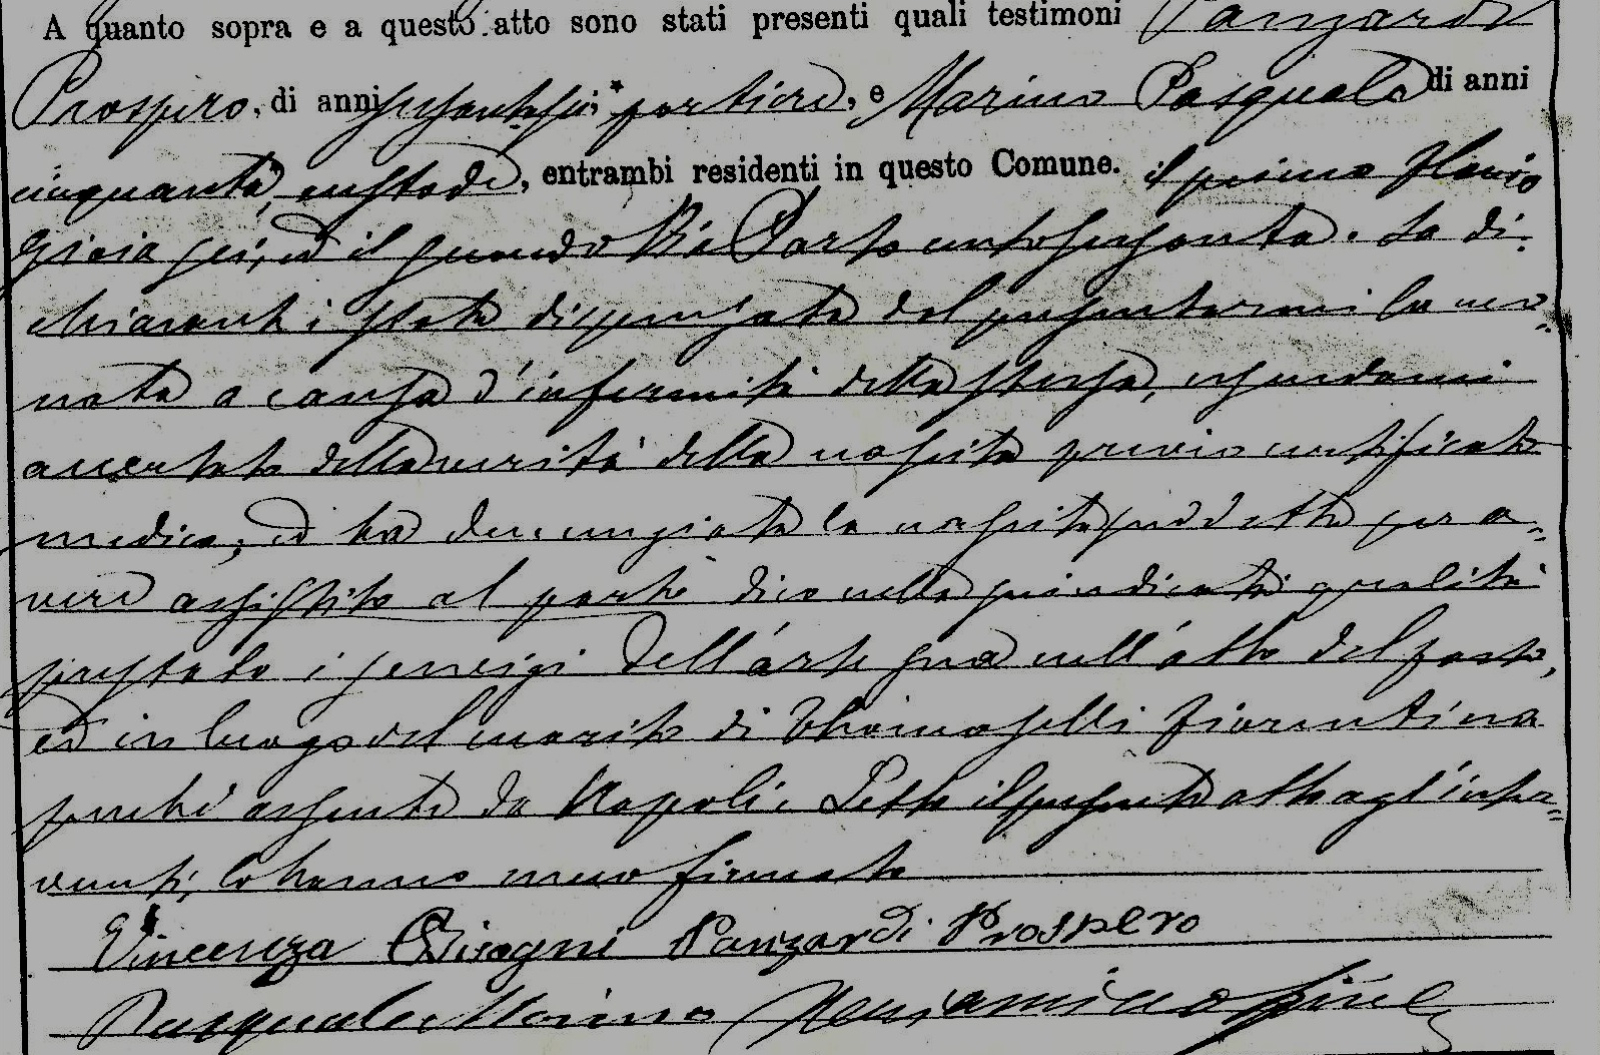 A quanto sopra e a questo atto sono stati presenti quali testimoni Panzardi
Prospero, di anni sessantasei portiere, e Marino Pasquale di anni
cinquanta, custode, entrambi residenti in questo Comune. il primo Flavio
Gioia sei, ed il secondo Via Porto centosessanta. La di-
chiarante è stata dispensata dal presentarmi la neo=
nata a causa d'infermità della stessa, essendomi
accertato della verità della nascita previo certificato
medico; ed ha denunziata la nascita suddetta per a=
vere assistito al parto dico nella suindicata qualità
prestato i servizi dell'arte sua nell'atto del parto,
ed in luogo del marito di Thomaselli Fiorentina
perché assente da Napoli. Letto il presente atto agl'inter=
venuti, lo hanno meco firmato
Vincenza Bisogni Panzardi Prospero
Pasquale Marino